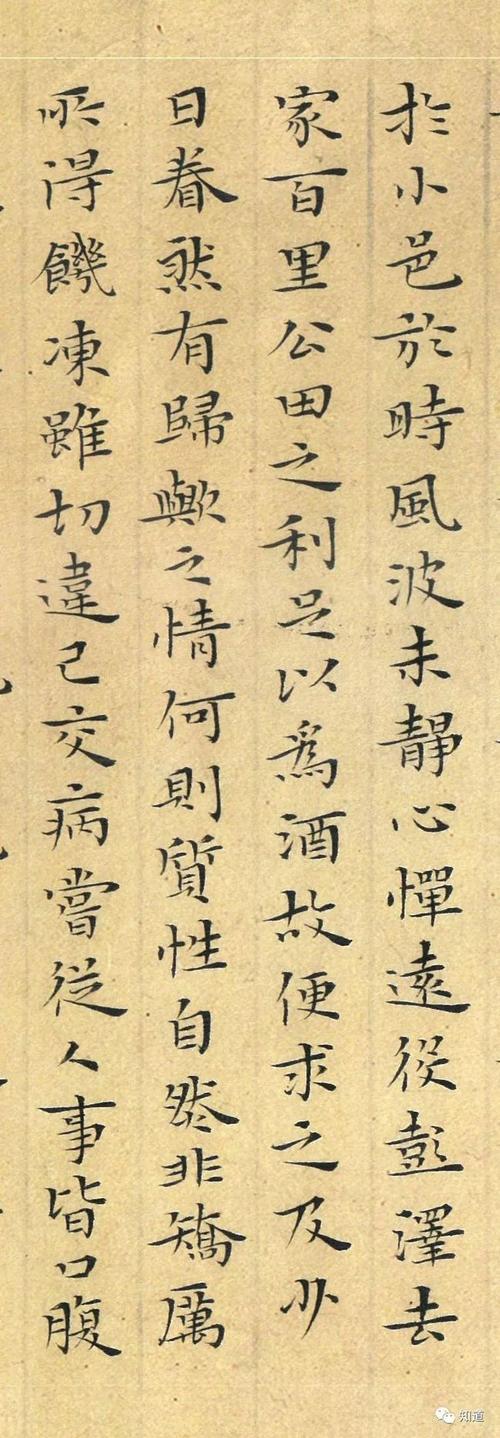 於小邑於時風波未靜心憚遠役彭澤去
家百里公田之利足以為酒故便求之及少
日眷然有歸歟之情何則質性自然非矯厲
所得饑凍雖切違己交病嘗從人事皆口腹
知道